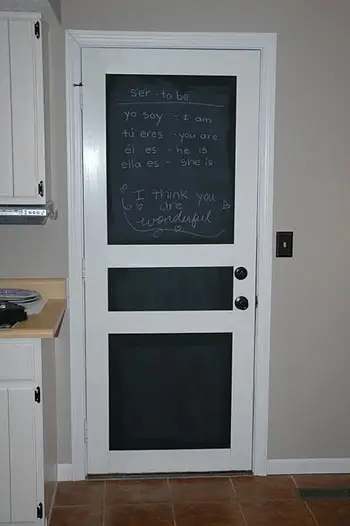 ser - to be
yo soy - I am
tú eres - you are
él es - he is
ella es - she is
I think you
are
wonderful